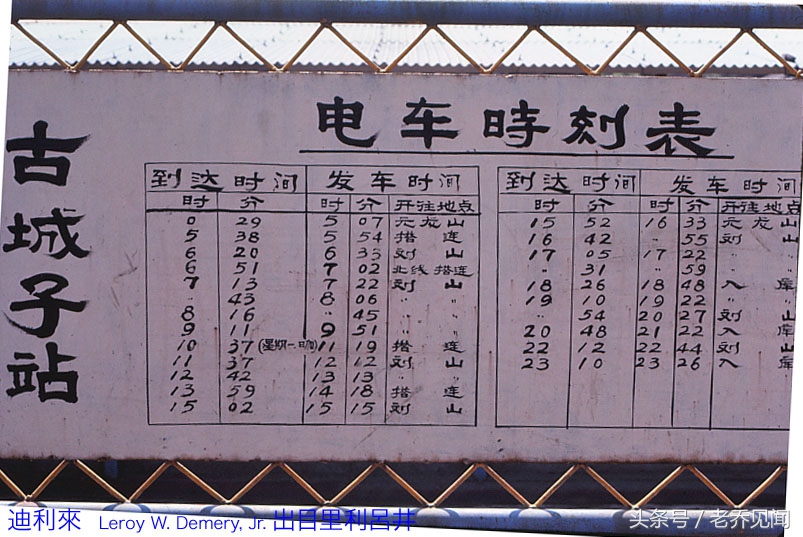 电车時刻表
古城子站
到达时间 发车时间
时 分 时 分 开往地点
0 29 5 07 元龙山
5 38 5 54 搭连
6 20 6 33 刘山
6 51 7 02 北线搭连
7 13 7 22 刘山
〃 43 8 06 〃
8 16 〃 45 〃
9 11 9 51 〃
10 37 (星期一.日/0) 11 19 搭连
11 37 12 12 刘山
12 42 13 13 〃
13 59 14 18 搭连
15 02 15 15 刘山
到达时间 发车时间
时 分 时 分 开往地点
15 52 16 33 元龙山
16 42 〃 55 刘山
17 05 17 22 〃
〃 31 〃 59 〃
18 26 18 48 入库
19 10 19 22 〃
〃 54 20 27 刘山
20 48 21 22 入库
22 12 22 44 刘山
23 10 23 26 入库
迪利來 Leroy W. Demery, Jr. 出目里利呂井
头条号 / 老乔见闻